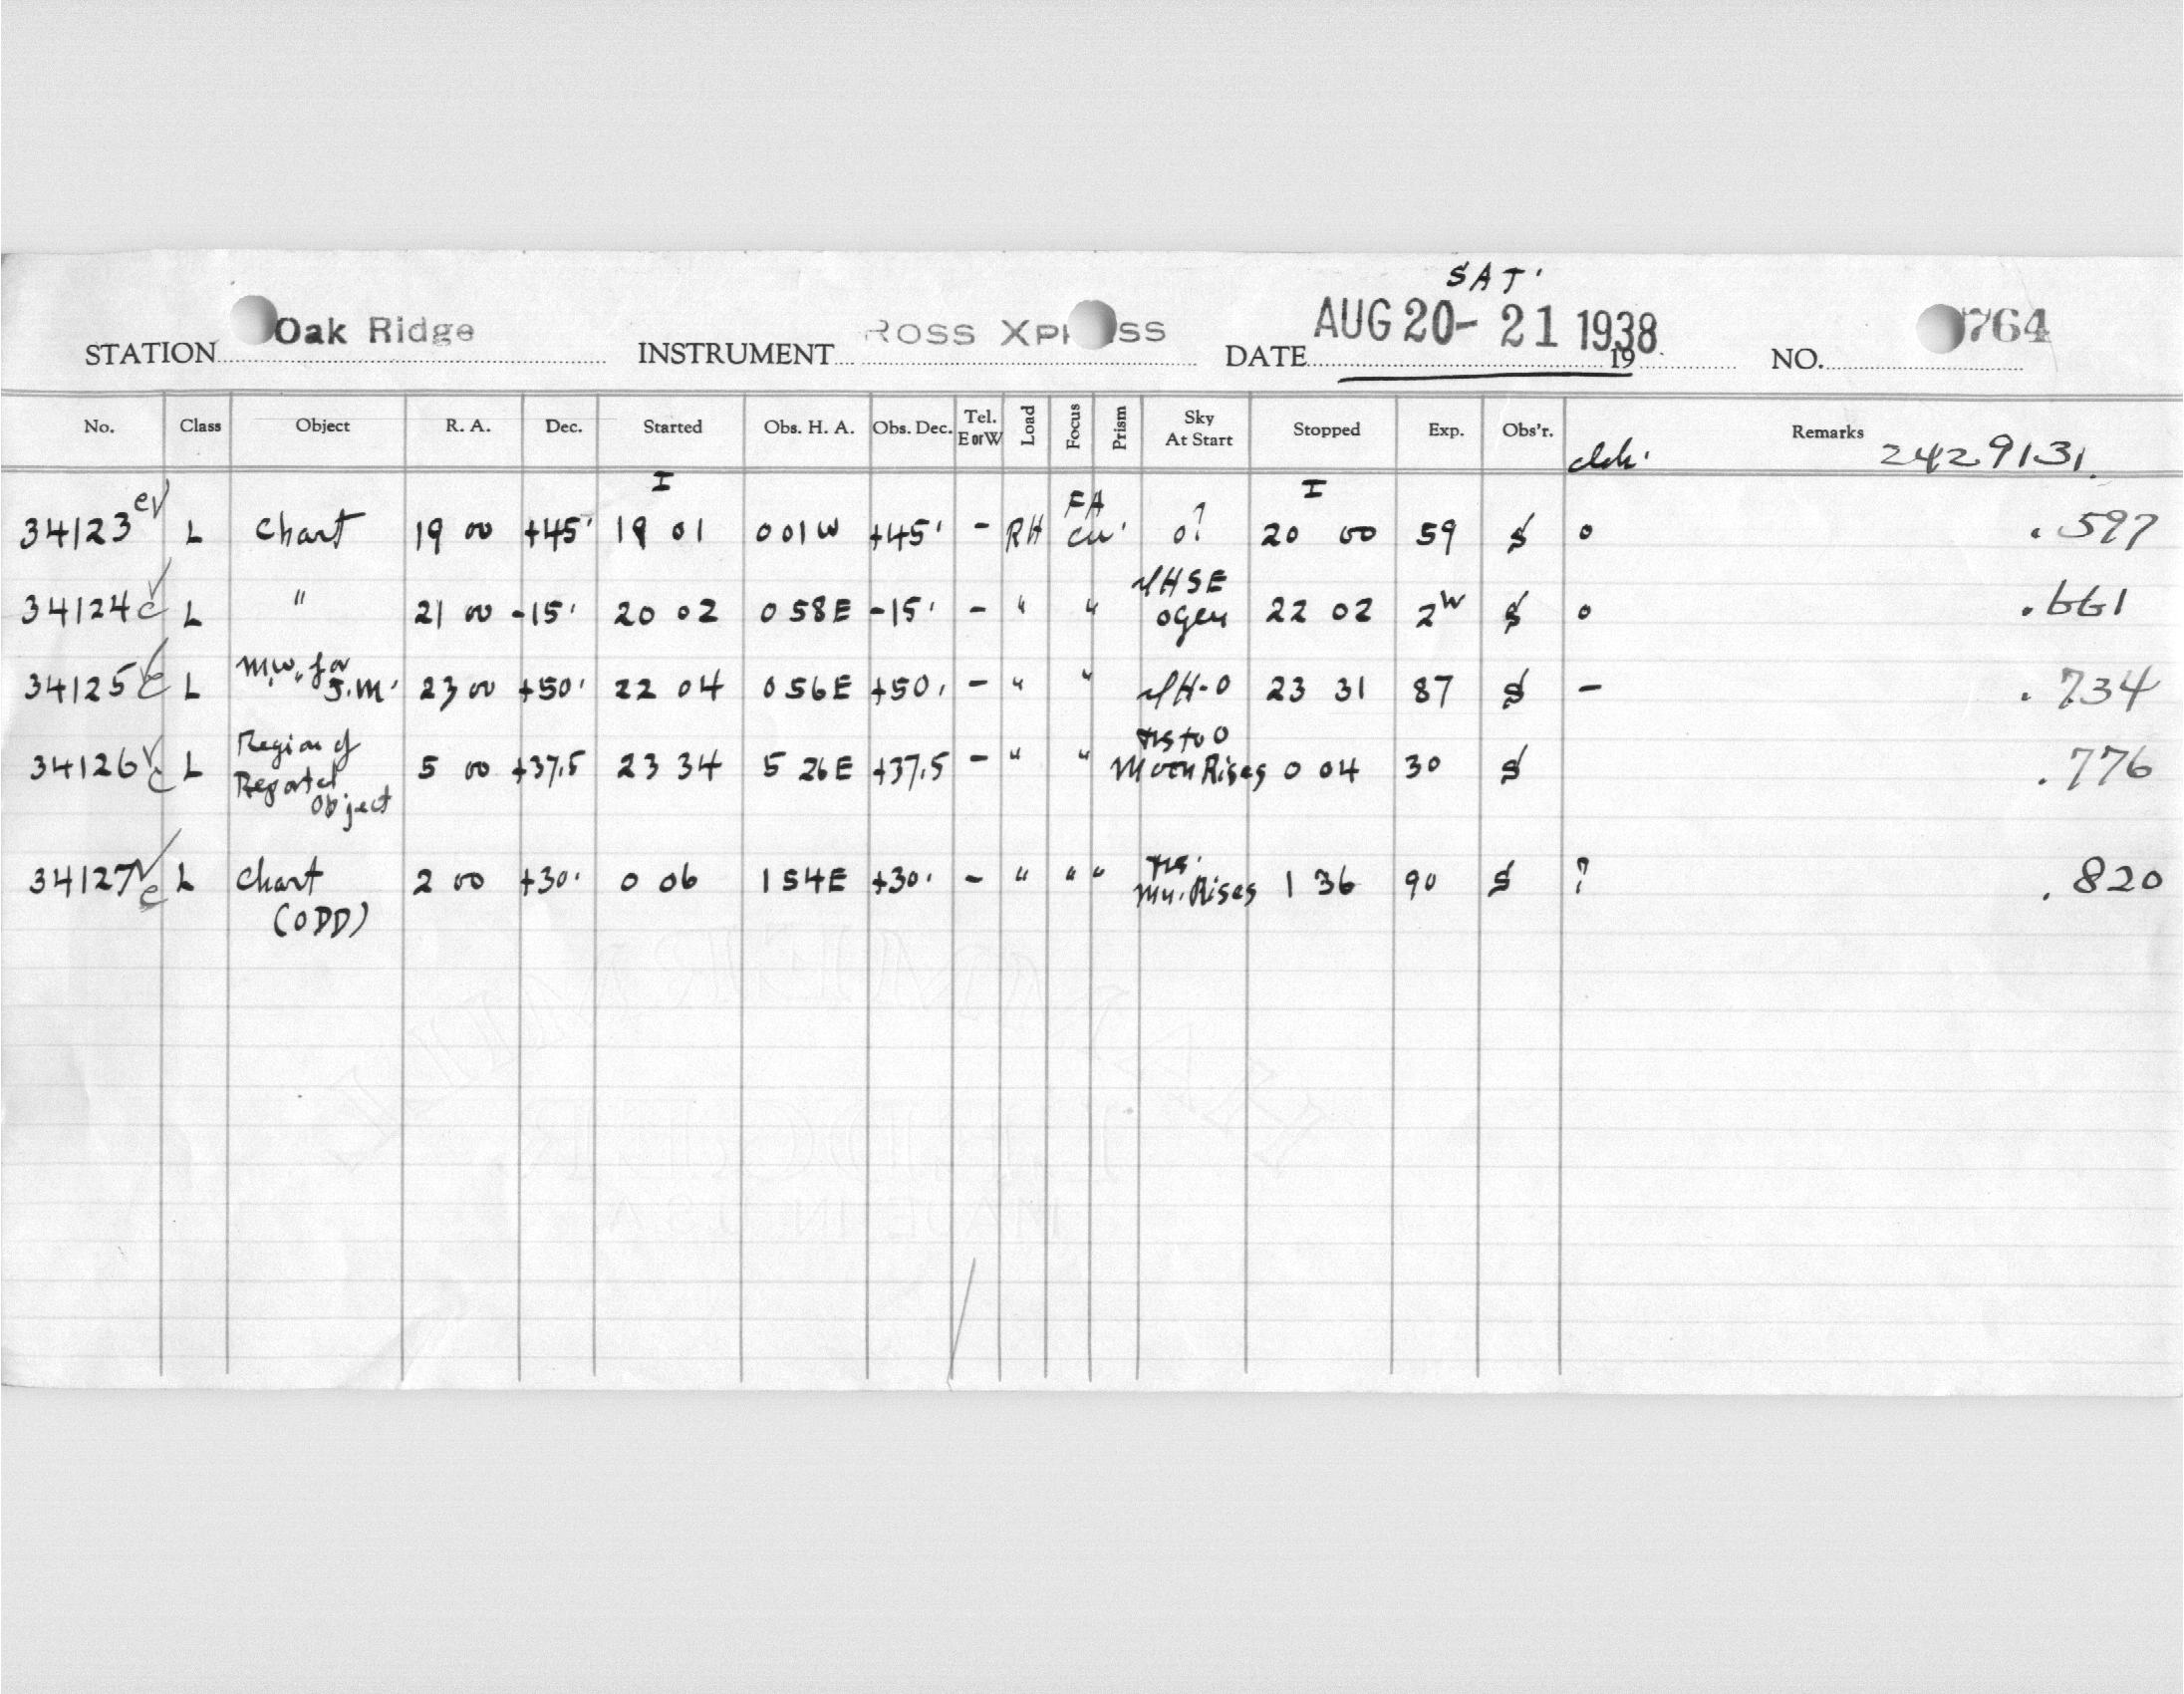 SAT.
STATION Oak Ridge INSTRUMENT ROSS XPRESS DATE AUG 20-21 1938 19 NO. 764
No. Class Object R. A. Dec. Started Obs. H. A. Obs. Dec. Tel. E or W Load Focus Prism Sky At Start Stopped Exp. Obs'r. Remarks
2429131.
I I
34123 L Chart 19 00 +45 19 01 0 01 W +45 - RH FA 0? 20 00 59 $ 0 .597
34124 c L " 21 00 -15 20 02 0 58 E -15 - " " HSE 22 02 2 W $ 0 .661
34125 c L M.W. for J.M. 23 00 +50 22 04 0 56 E +50 - " " H-0 23 31 87 $ - .734
34126 c L Region of Reported Object 5 00 +37.5 23 34 5 26 E +37.5 - " " to 0 Moon Rises 0 04 30 $ .776
34127 c L Chart 2 00 +30 0 06 1 54 E +30 - " " " Mn. Rises 1 36 90 $ ? .820
(ODD)
MADE IN U.S.A.